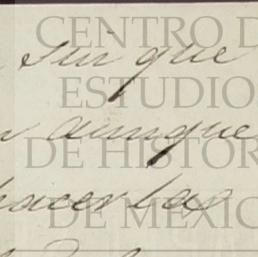 CENTRO D
sin que
ESTUDIO
aunque
DE HISTOR
hacerlas
DE MEXIC